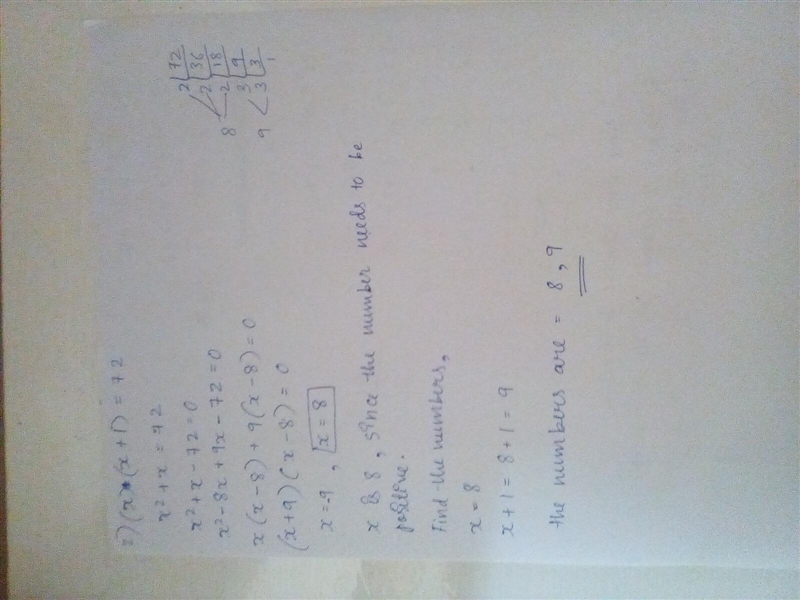 2) (x) (x+1) = 72
x² + x = 72
x² + x - 72 = 0
x² - 8x + 9x - 72 = 0
x (x - 8) + 9 (x - 8) = 0
(x+9) (x - 8) = 0
x = -9 , x = 8
x is 8 , since the number needs to be
positive.
Find the numbers,
x = 8
x + 1 = 8 + 1 = 9
the numbers are = 8 , 9
2 72
2 36
8 2 18
3 9
9 3 3
1